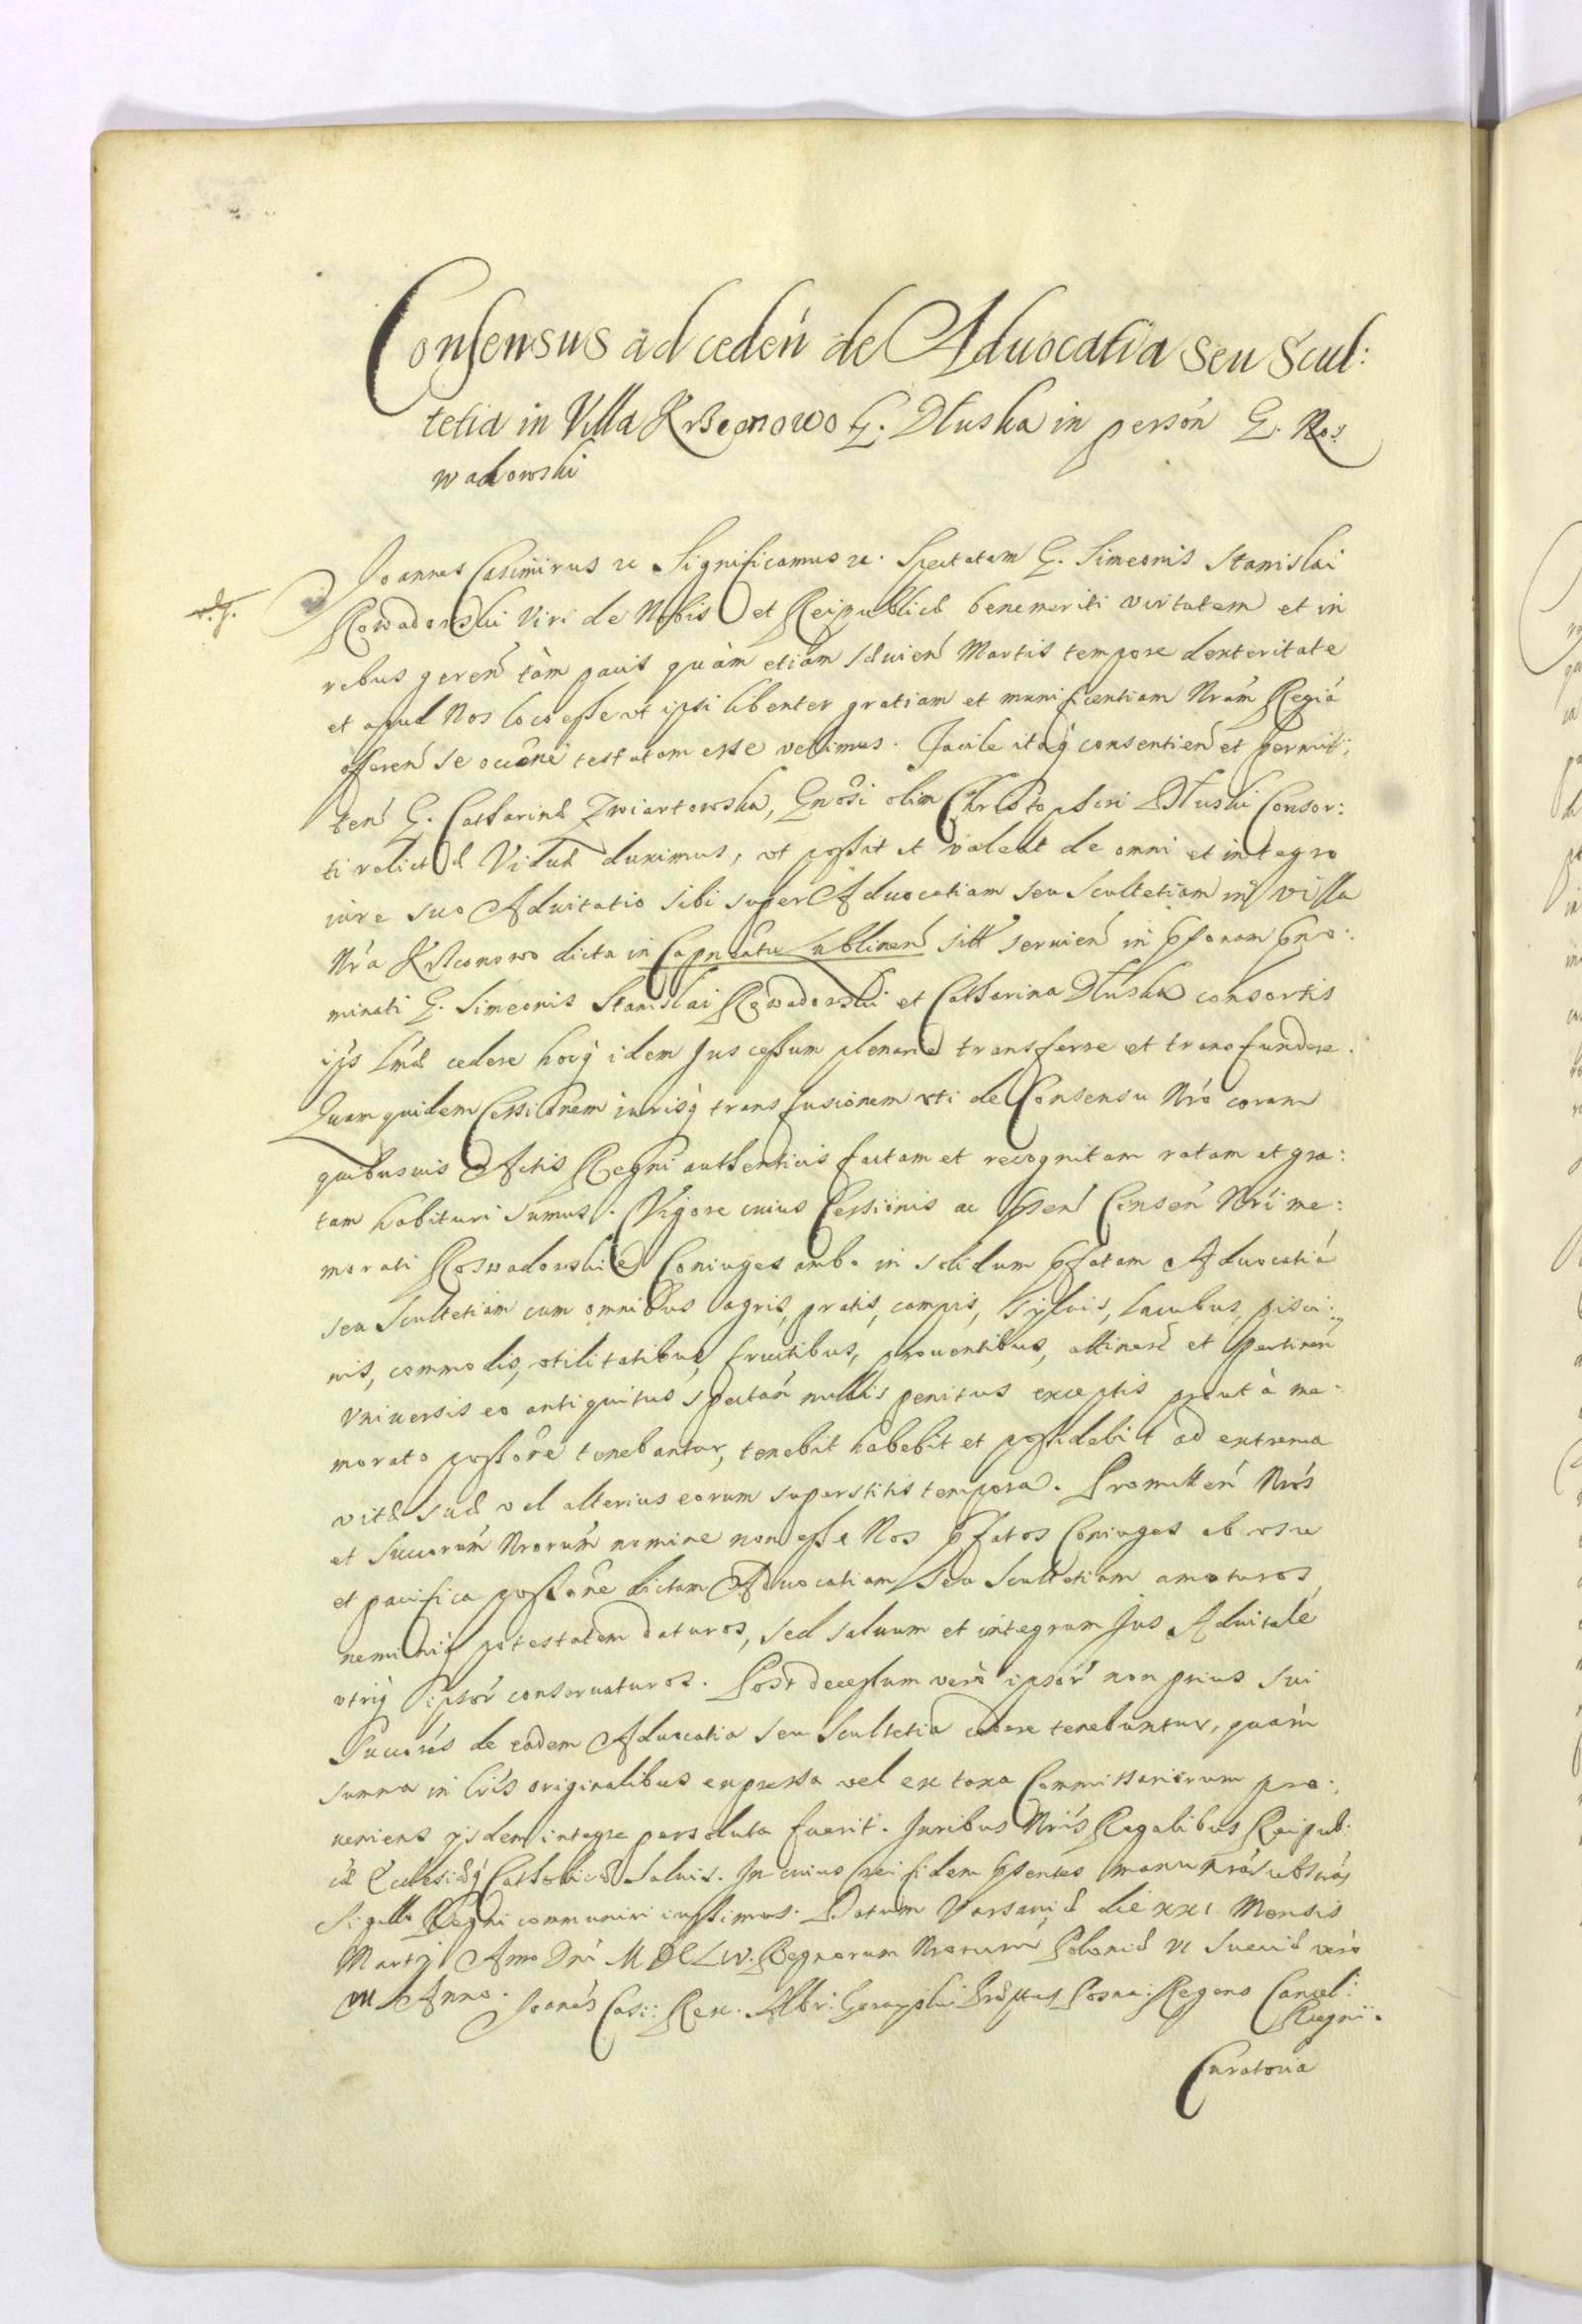 Consensus ad ceden de Aduocatia seu Scul:
tetia in Villa Krzconowo G. Dłuska in person G. Ros
wadowski
Joannes Casimirus etc Significamus etc. Spectatam G. Simeonis Stanislai
Rozwadowski Viri de Nobis et Reipublicæ benemeriti virtutem et in
rebus geren tàm pacis quàm etiàm sæuien Martis tempore dexteritate
et apud Nos loco esse vt ipsi libenter gratiam et munificentiam Nram Regiã
offeren se occõne testatam esse velimus. Facile itaq consentien et permit:
ten G. Catharinæ Zwiartowska, Gnosi olim Christopheri Dłuski Consor:
ti relictæ Viduæ duximus, vt possit et valeat de omni et integro
iure suo Aduitatio sibi super Aduocatiam seu Scultetiam in villa
Nra Krzconowo dicta in Capneatu Lublinen sitt seruien in psonam pno:
minati G. Simeonis Stanislai Rozwadowski et Catharina Dłuska consortis
ips lmæ cedere hocq idem Jus cessum plenarie transferre et transfundere.
Quam quidem Cessionem iurisq transfusionem vti de Consensu Nro coram
quibusuis Actis Regni authenticis factam et recognitam ratam et gra:
tam habituri sumus. Vigore cuius Cessionis ac psen Consen Nri me:
morati Roswadowskie Coniuges ambo in solidum pfatam Aduocatiã
seu Scultetiam cum omnibus agris, pratis, campis, sylvis, lacubus, pisci:
nis, commodis, vtilitatibus, fructibus, prouentibus, attinen et pertinen
Vniuersis eò antiquitus spectan nullis penitus exceptis prout à me:
morato possore tenebantur, tenebit habebit et possidebit ad extrema
vitæ suæ vel alterius eorum superstitis tempora. Promitten Nros
et Succorum Nrorum nomine non esse Nos pfatos Coniuges ab vsu
et pacifica possone dictam Aduocatiam seu Scultetiam amoturos,
neminiq potestatem daturos, sed saluum et integrum Jus Aduitale
vtriq ipsor conseruaturos. Post decessum verò ipsor non prius sui
Succores de eadem Aduocatia seu Scultetia cedere tenebuntur, quàm
summa in lris originalibus expressa vel ex taxa Commissariorum pro:
ueniens ijsdem integre persoluta fuerit. Juribus Nris Regalibus Reipub:
cæ Ecclesiæq Catholicæ Saluis. In cuius rei fidem psentes manu nra subscrãs
Sigillo Regni communiri iussimus. Datum Varsauiæ die XXI Mensis
Martij Anno Dni MDCLIV. Regnorum Nrorum Poloniæ VI Sueciæ verò
VII Anno. Joanes Casi: Rex. Albr: Præpttus Posna: Regens Cancel:
Regni.
Curatoria